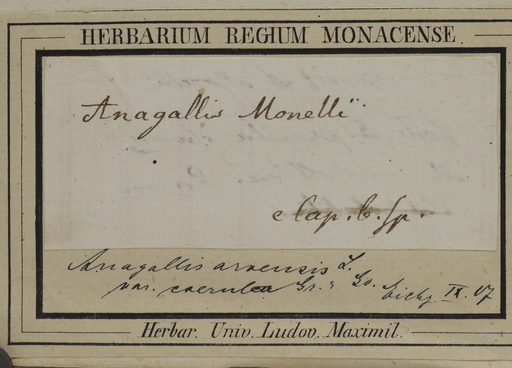 HERBARIUM REGIUM MONACENSE.
Anagallis Monelli
e Cap. b. sp.
Anagallis arvensis L.
var. caerulea Gr. & Go. IX. 07
Herbar. Univ. Ludov. Maximil.